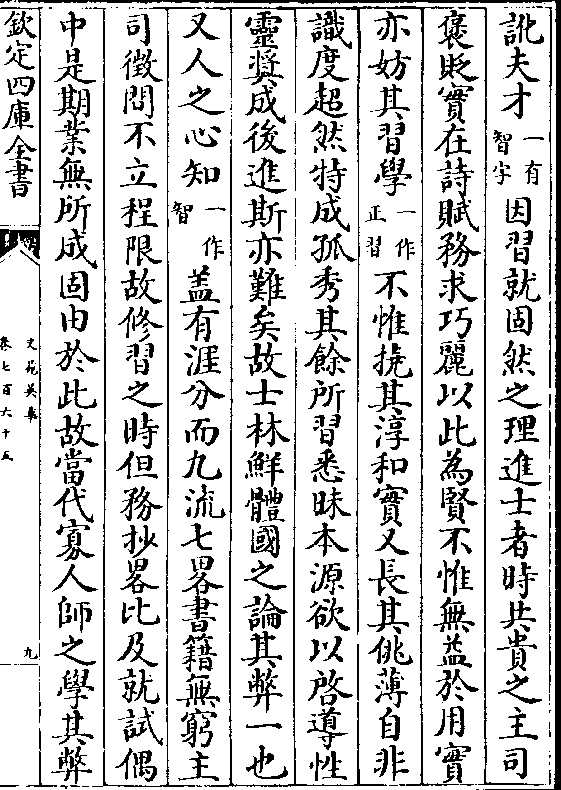 訿夫才一有智字因習就固然之理進士者時共貴之主司
褒貶實在詩賦務求巧麗以此為賢不惟無益於用實
亦妨其習學一作正習不惟撓其淳和實又長其佻薄自非
識度超然特成孤秀其餘所習悉昧本源欲以啓導性
靈奬成後進斯亦難矣故士林鮮體國之論其弊一也
又人之心知一作智盖有涯分而九流七畧書籍無窮主
司徵問不立程限故修習之時但務抄畧比及就試偶
中是期業無所成固由於此故當代寡人師之學其弊
欽定四庫全書
文苑英華
卷七百六十五
九